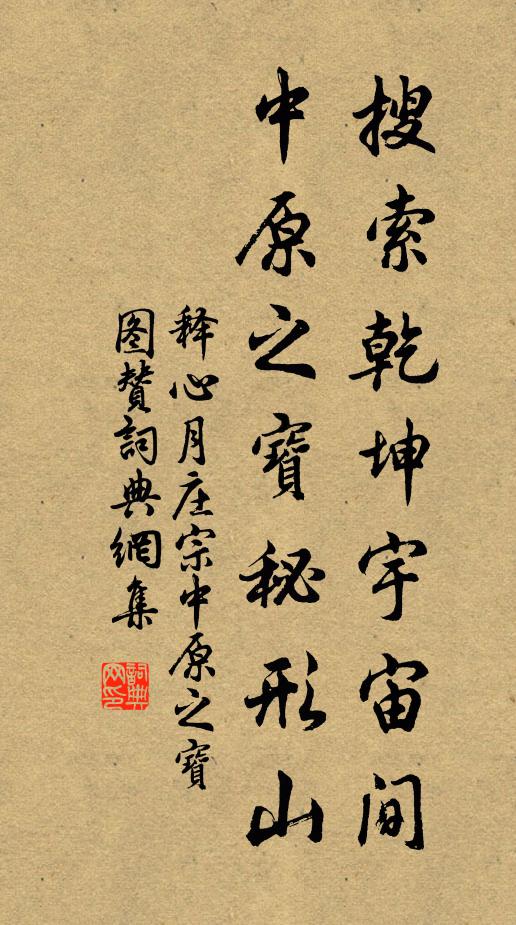 搜索乾坤宇宙间
中原之寶秘形山
释心月庄宗中原之寶
图賛詞典網集
詞典网印